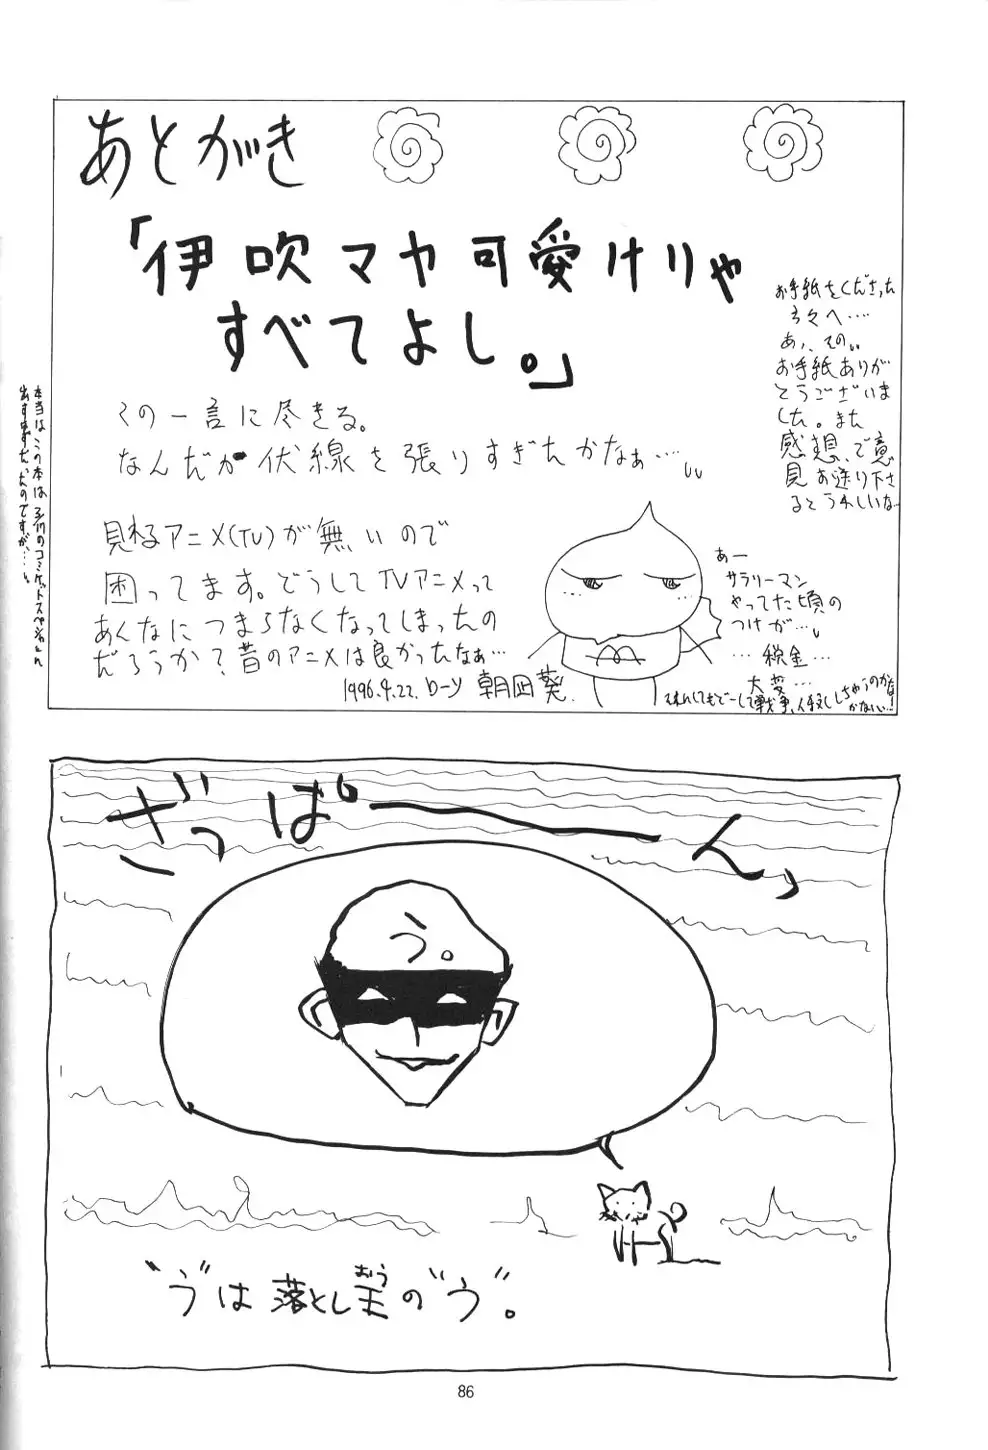 あとがき
「伊吹マヤ可愛けりゃ
すべてよし。」
この一言に尽きる。
なんだか伏線を張りすぎたかなぁ…
見れるアニメ(TV)が無いので
困ってます。どうしてTVアニメって
あんなにつまらなくなってしまったの
だろうか?昔のアニメは良かったなぁ…
1996.4.22. ローソ 朝凪葵.
お手紙をくださった
方々へ…
あ、その。
お手紙ありが
とうございま
した。また
感想、ご意
見お送り下さ
るとうれしいな
あー
サラリーマン
やってた頃の
つけが…
…税金…
大変…
本当はこの本は3月のコミケットスペシャルに
出すはずだったのですが…
ざっぱーん
う。
"う"は落とし王の"う"。
おう
86